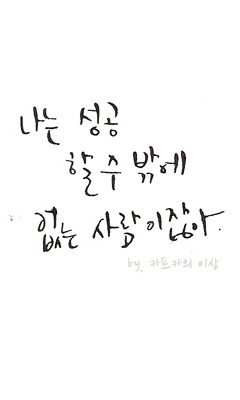 나는 성공
할 수 밖에
없는 사람이잖아.
by. 카프카의 이상